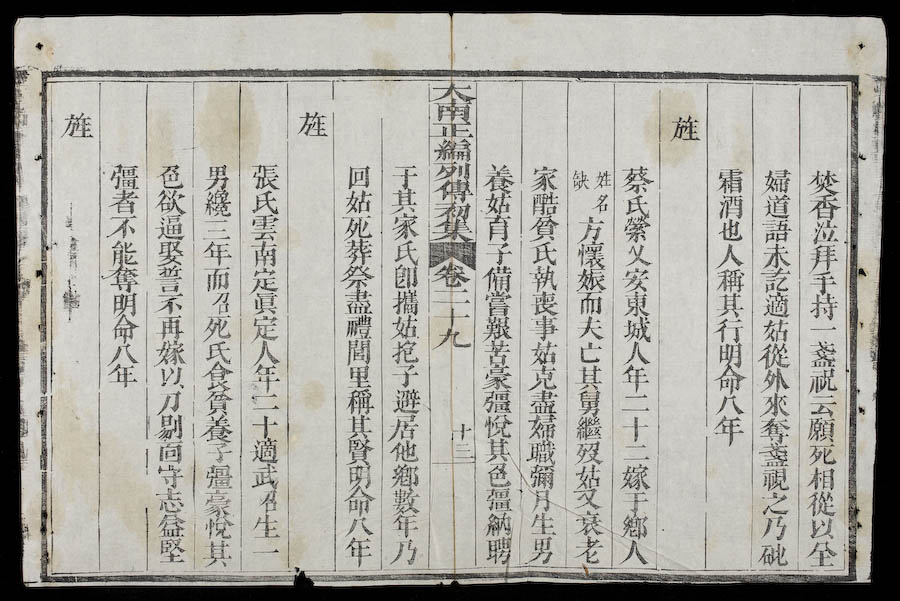 焚香泣拜手持一盞祝云願死相從以全
婦道語未訖適姑從外來奪盞視之乃砒
霜酒也人稱其行明命八年
旌
蔡氏縈乂安東城人年二十二嫁于鄉人
姓名缺方懷娠而夫亡其舅繼歿姑又衰老
家酷貧氏執喪事姑克盡婦職彌月生男
養姑育子備嘗艱苦豪彊悅其色彊納聘
大南正編列傳初集 卷二十九 十三
于其家氏卽攜姑抱子避居他鄉數年乃
回姑死葬祭盡禮閭里稱其賢明命八年
旌
張氏雲南定眞定人年二十適武召生一
男纔三年而召死氏食貧養子彊豪悅其
色欲逼娶誓不再嫁以刀剔面守志益堅
彊者不能奪明命八年
旌